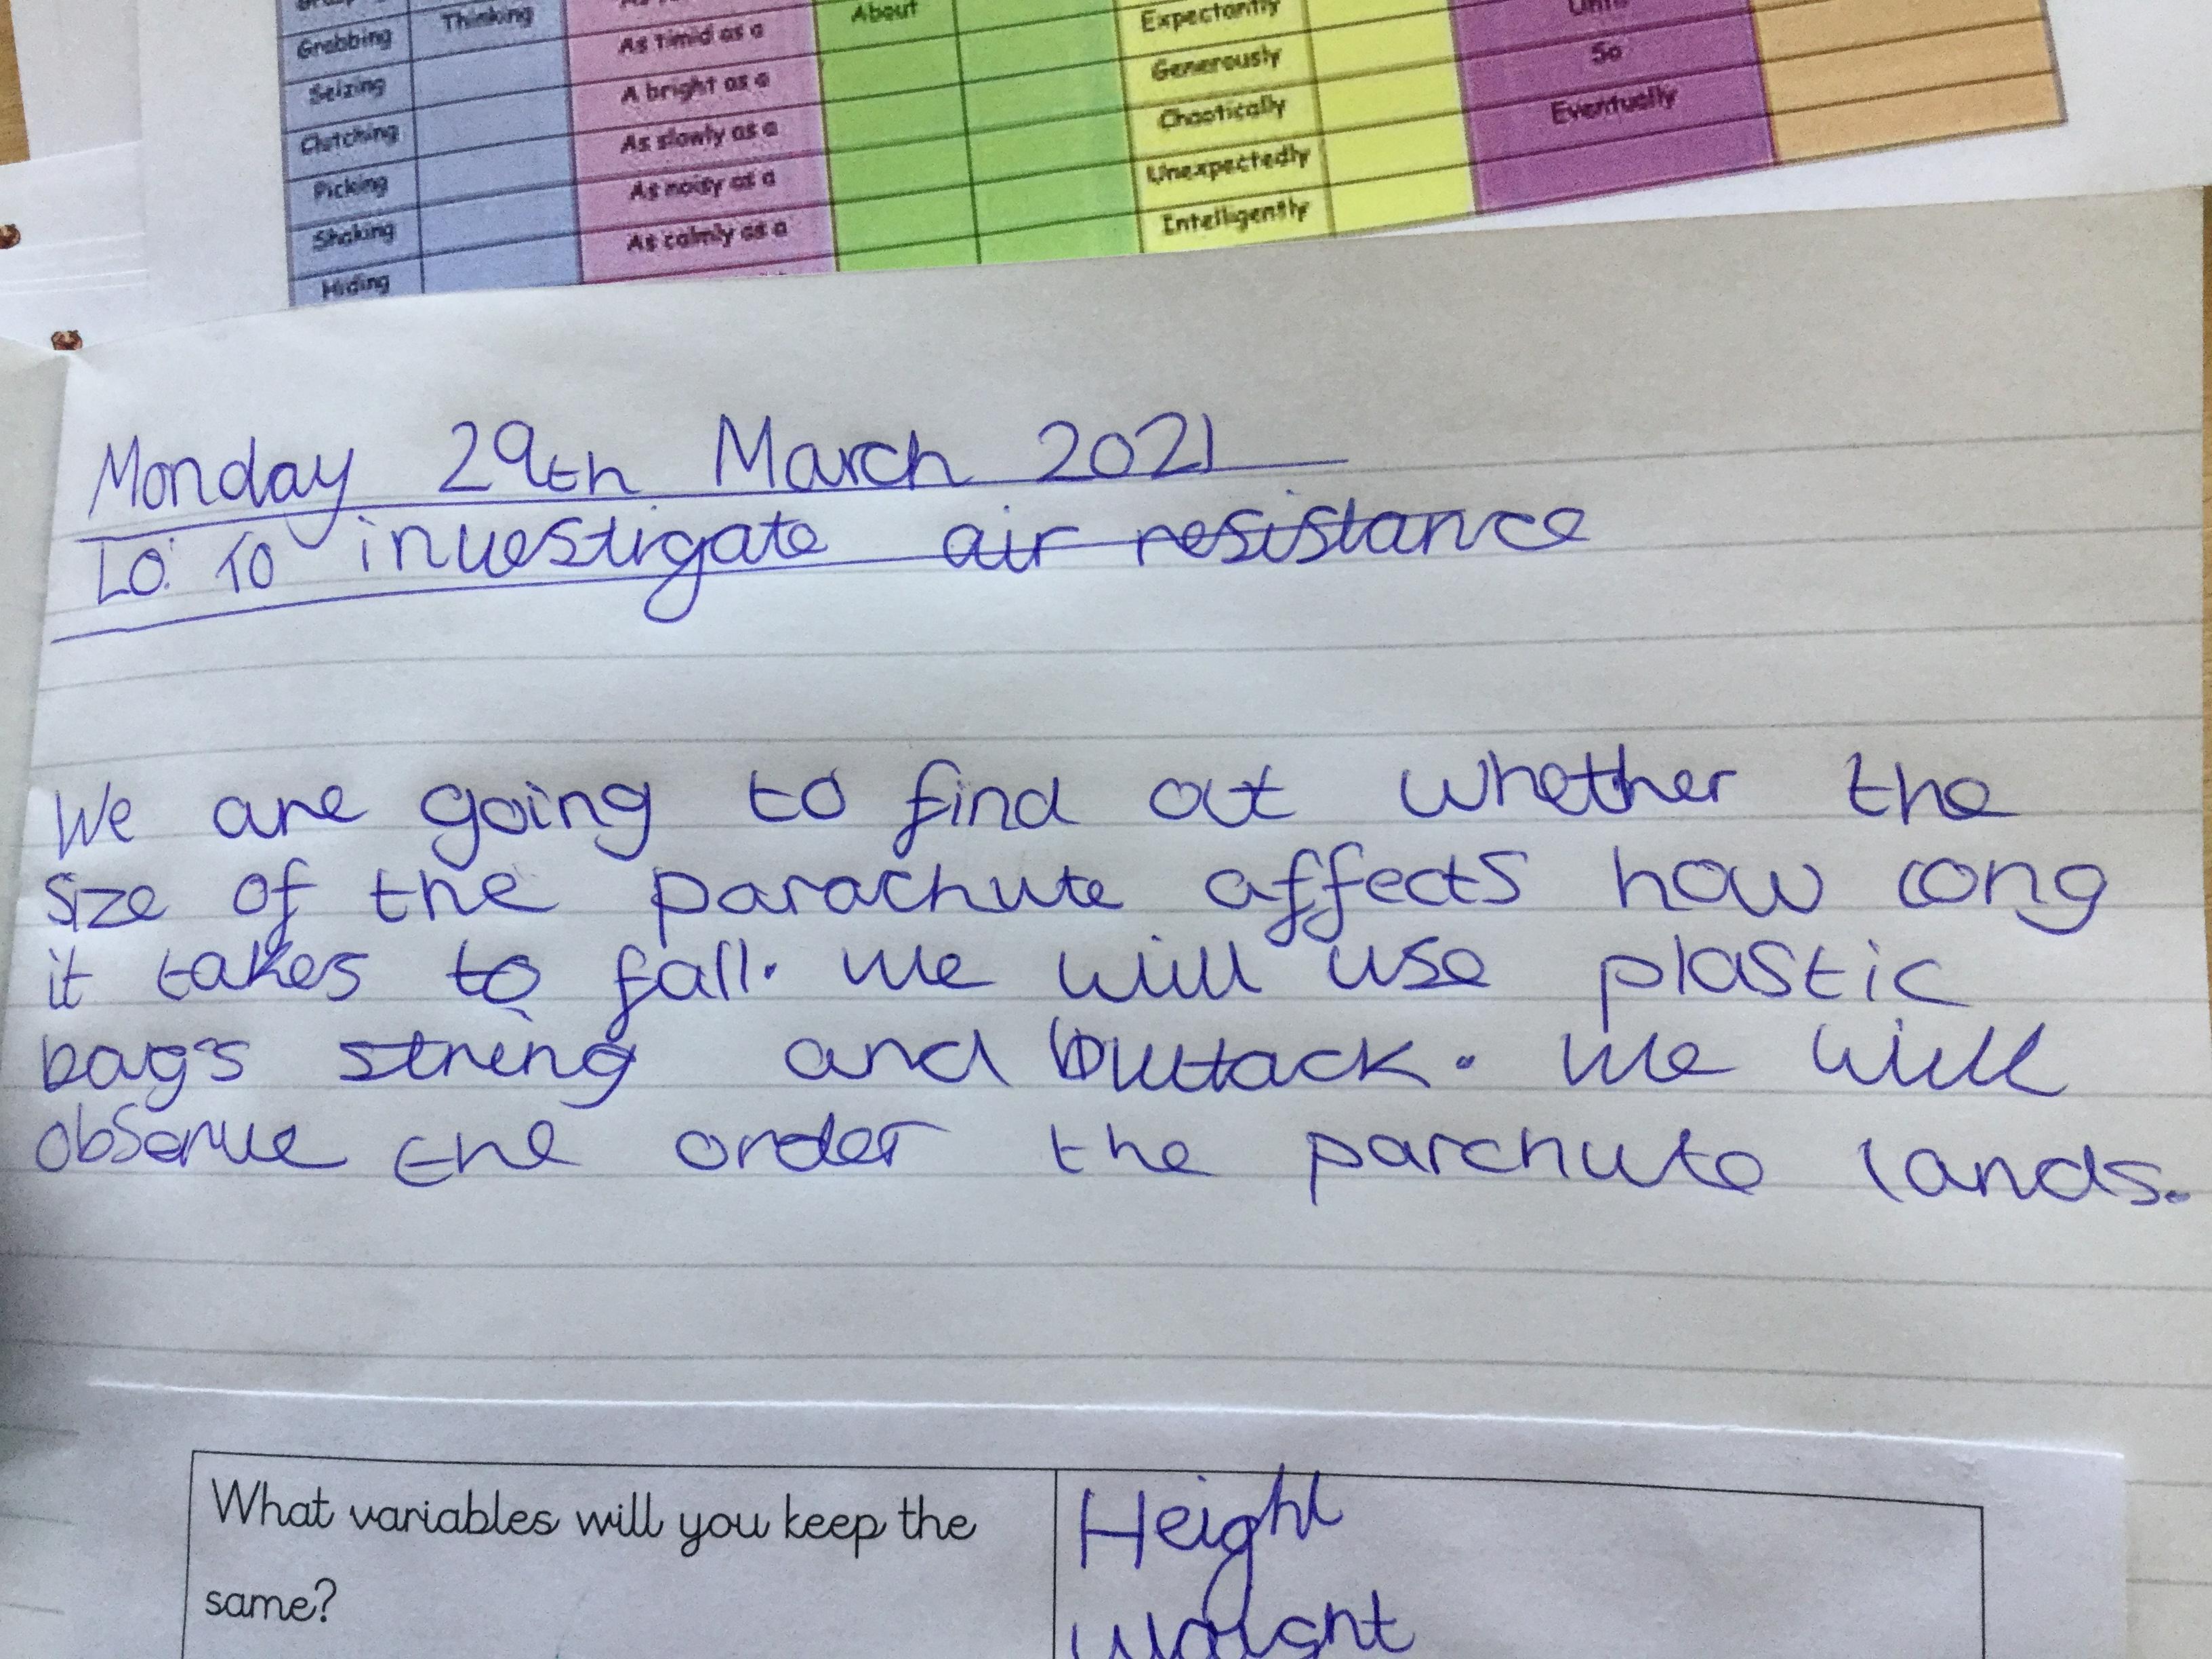 Grabbing Thinking About Expectantly
Seizing As timid as a Generously So
Clutching A bright as a Chaotically Eventually
Picking As slowly as a Unexpectedly
Shaking As noisy as a Intelligently
Hiding As calmly as a
Monday 29th March 2021
LO: To investigate air resistance
We are going to find out whether the
size of the parachute affects how long
it takes to fall. We will use plastic
bags string and blutack. We will
observe the order the parchute lands.
What variables will you keep the
same?
Height
Weight